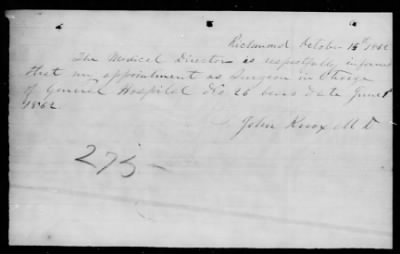 Richmond October 15th 1862
The Medical Director is respectfully informed
that my appointment as Surgeon in Charge
of General Hospital No 26 bears date June 1
1862.
John Knox M D
275